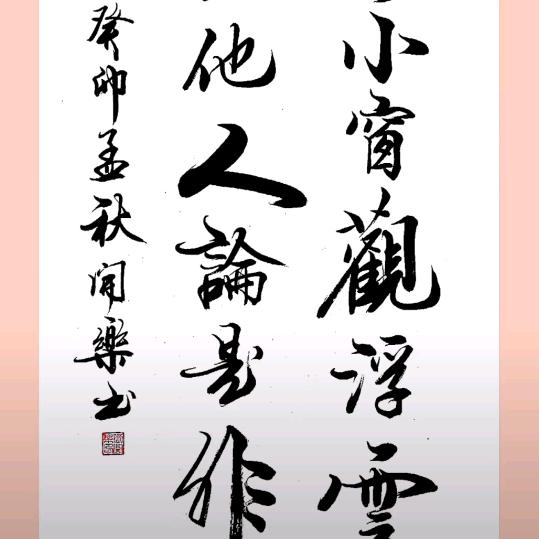 小窗觀浮雲
他人論是非
癸卯孟秋開樂书